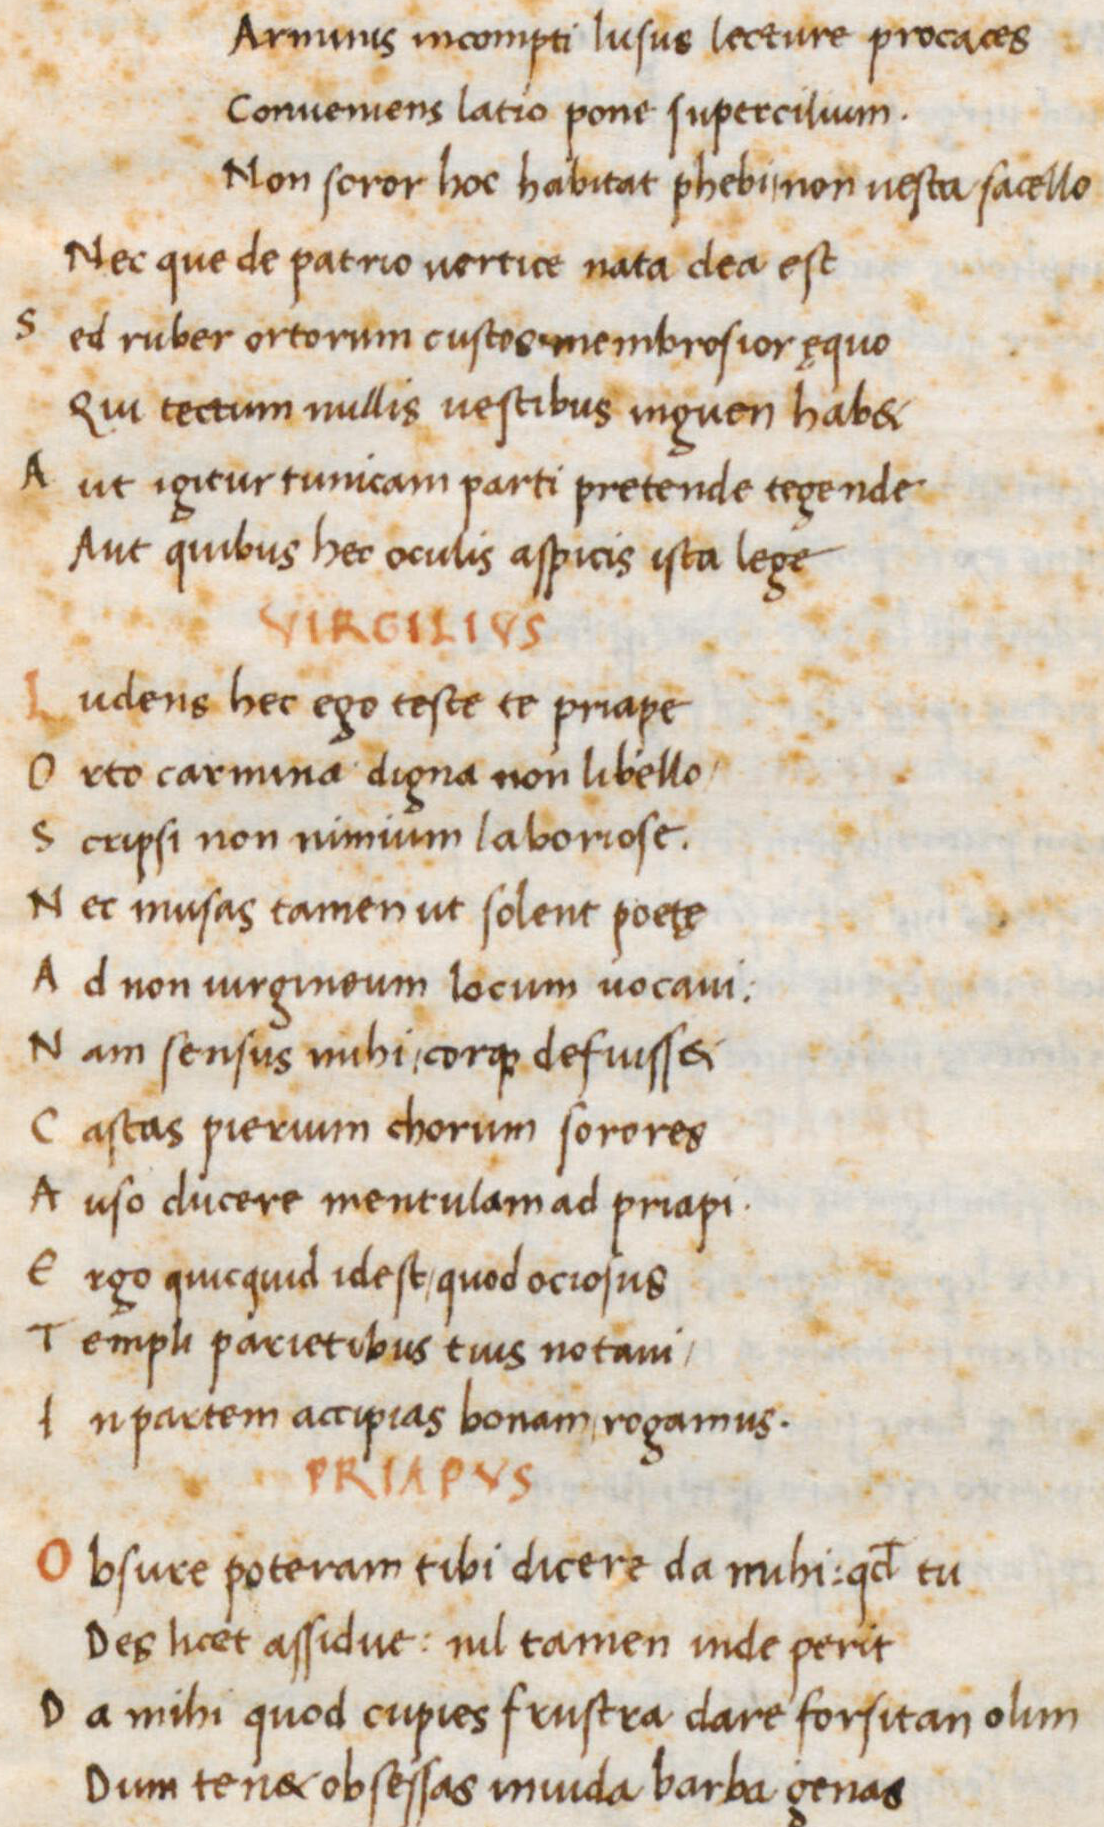 Arminis incompti lusus lecture procaces
Conveniens latio pone supercilium.
Non soror hoc habitat phebi, non uesta sacello
Nec que de patrio uertice nata dea est
Sed ruber ortorum custos membrosior ęquo
Qui tectum nullis uestibus inguen hab&
Aut igitur tunicam parti pretende tegende
Aut quibus hec oculis aspicis ista lege
VIRGILIVS
Ludens hec ego teste te priape
Orto carmina digna non libello/
Scripsi non nimium laboriose.
Nec musas tamen ut solent poetę
Ad non uirgineum locum uocaui:
Nam sensus mihi, corq; defuiss&
Castas pierium chorum sorores
Auso ducere mentulam ad priapi.
Ergo quicquid id est, quod ociosus
Templi parietibus tuis notaui/
In partem accipias bonam, rogamus.
PRIAPVS
Obsure poteram tibi dicere da mihi: qd̄ tu
Des licet assidue: nil tamen inde perit
Da mihi quod cupies frustra dare forsitan olim
Dum ten& obsessas inuida barba genas